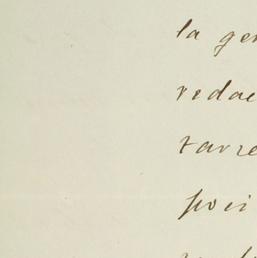 la gen
redac
tarre
poi